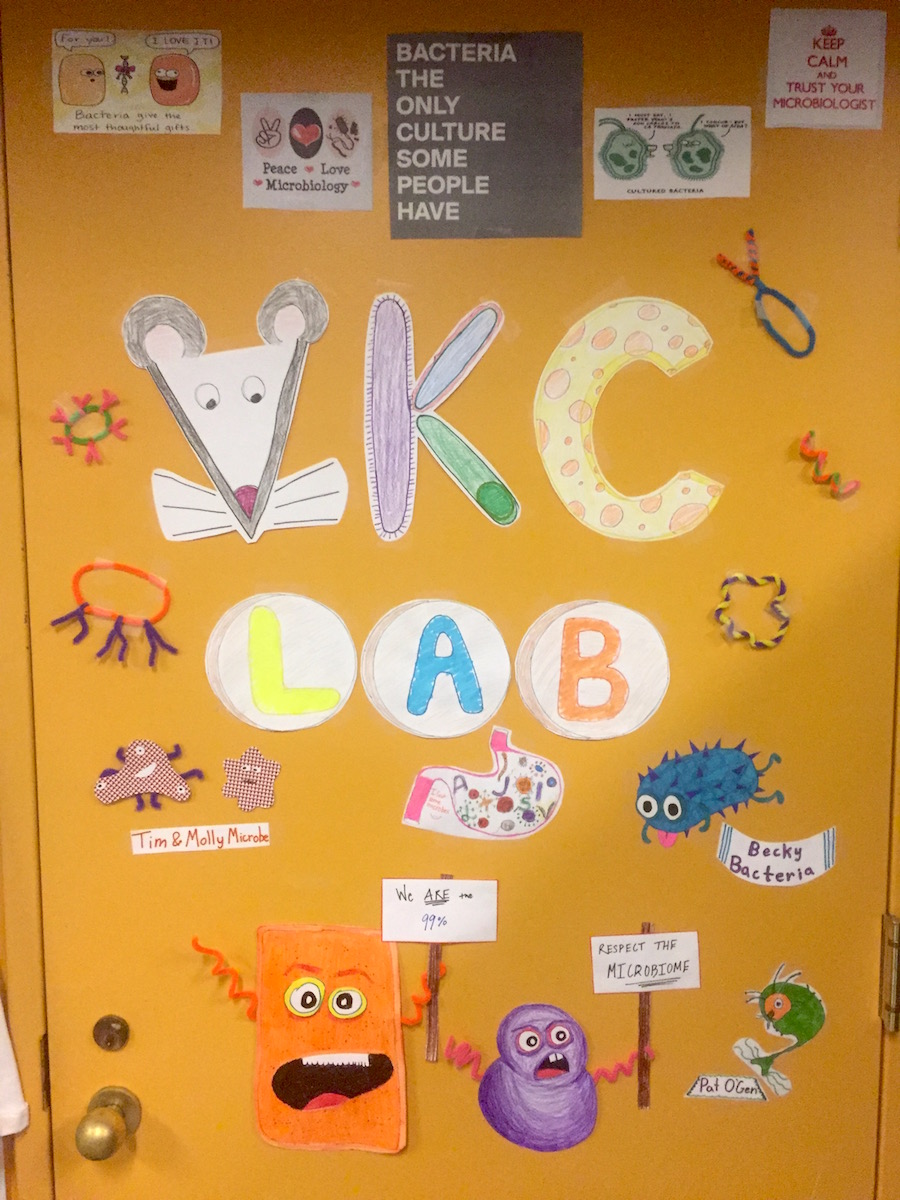 For you!
I LOVE IT!
Bacteria give the
most thoughtful gifts.
Peace Love
Microbiology
BACTERIA
THE
ONLY
CULTURE
SOME
PEOPLE
HAVE
CULTURED BACTERIA
KEEP
CALM
AND
TRUST YOUR
MICROBIOLOGIST
VKC
LAB
Tim & Molly Microbe
Becky
Bacteria
We ARE the
99%
RESPECT THE
MICROBIOME
Pat O'Gen